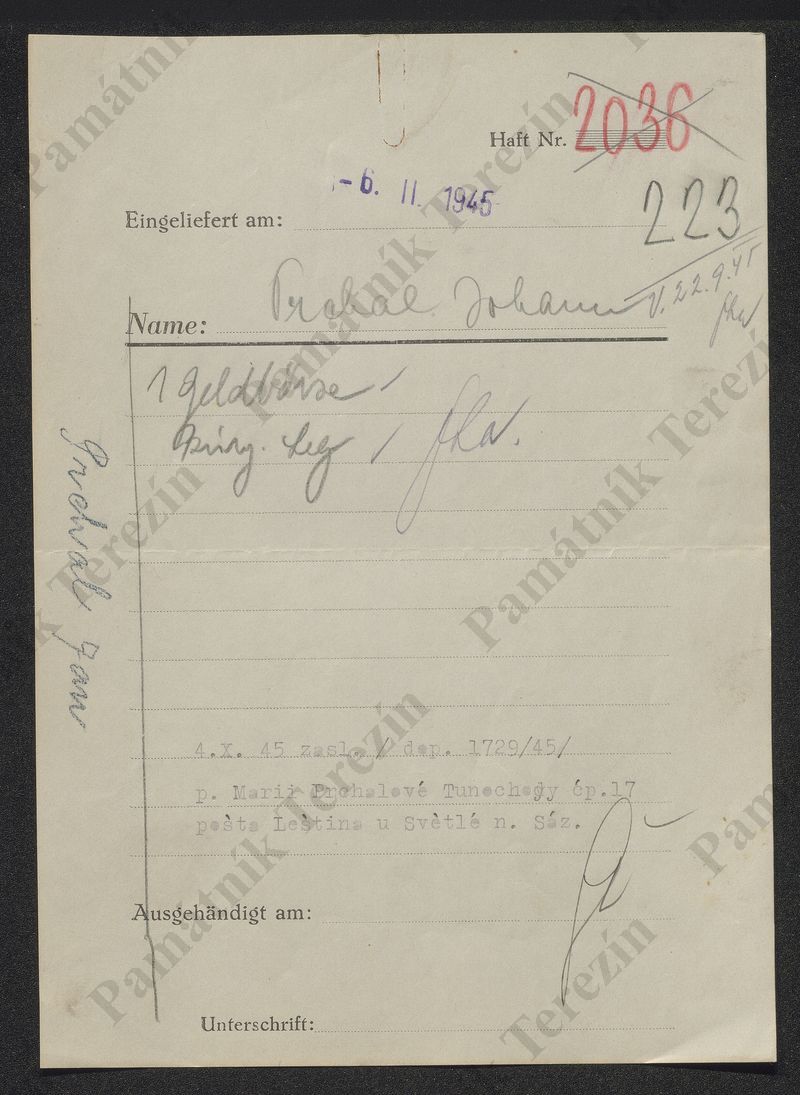 Haft Nr. 2036
- 6. II. 1945
Eingeliefert am:
223
V. 22.9.45
Name: Prchal Johann
1 Geldbörse
Leg
Prchal Jan
4.X. 45 zasl. / dep. 1729/45/
p. Marii Prchalové Tunochody čp.17
pošta Leština u Světlé n. Sáz.
Ausgehändigt am:
Unterschrift:
Památník Terezín
Památník Terezín
Památník Terezín
Památník Terezín